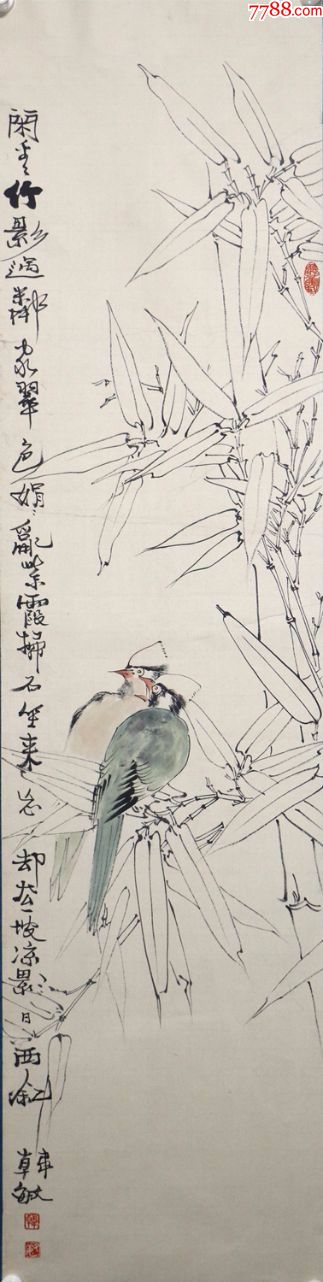 7788.com
閑看竹影過鄰家翠色娟娟亂紫霞掃石坐來忘却花一坡涼影日西斜
韓敏